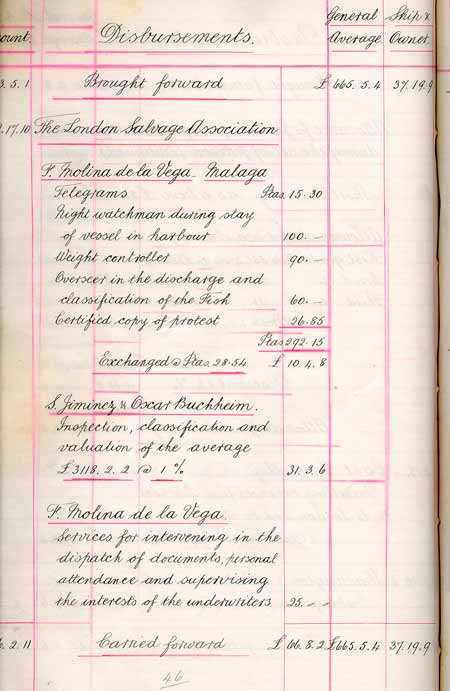 General Ship &
ount. Disbursements. Average. Owner.
3.5.1 Brought forward £ 665.5.4 37.19.9
2.17.10 The London Salvage Association
F. Molina de la Vega. Malaga
Telegrams Ptas 15.30
Night watchman during stay
of vessel in harbour 100.-
Weight controller 90.-
Overseer in the discharge and
classification of the Fish 60.-
Certified copy of protest 26.85
Ptas 292.15
Exchanged @ Ptas. 28.54 £ 10.4.8
S. Jiminez & Oscar Buchheim.
Inspection, classification and
valuation of the average
£3118.2.2 @ 1% 31.3.6
F. Molina de la Vega.
Services for intervening in the
dispatch of documents, personal
attendance and supervising
the interests of the underwriters 25.-.-
6.2.11 Carried forward £ 66.8.2 £665.5.4 37.19.9
46